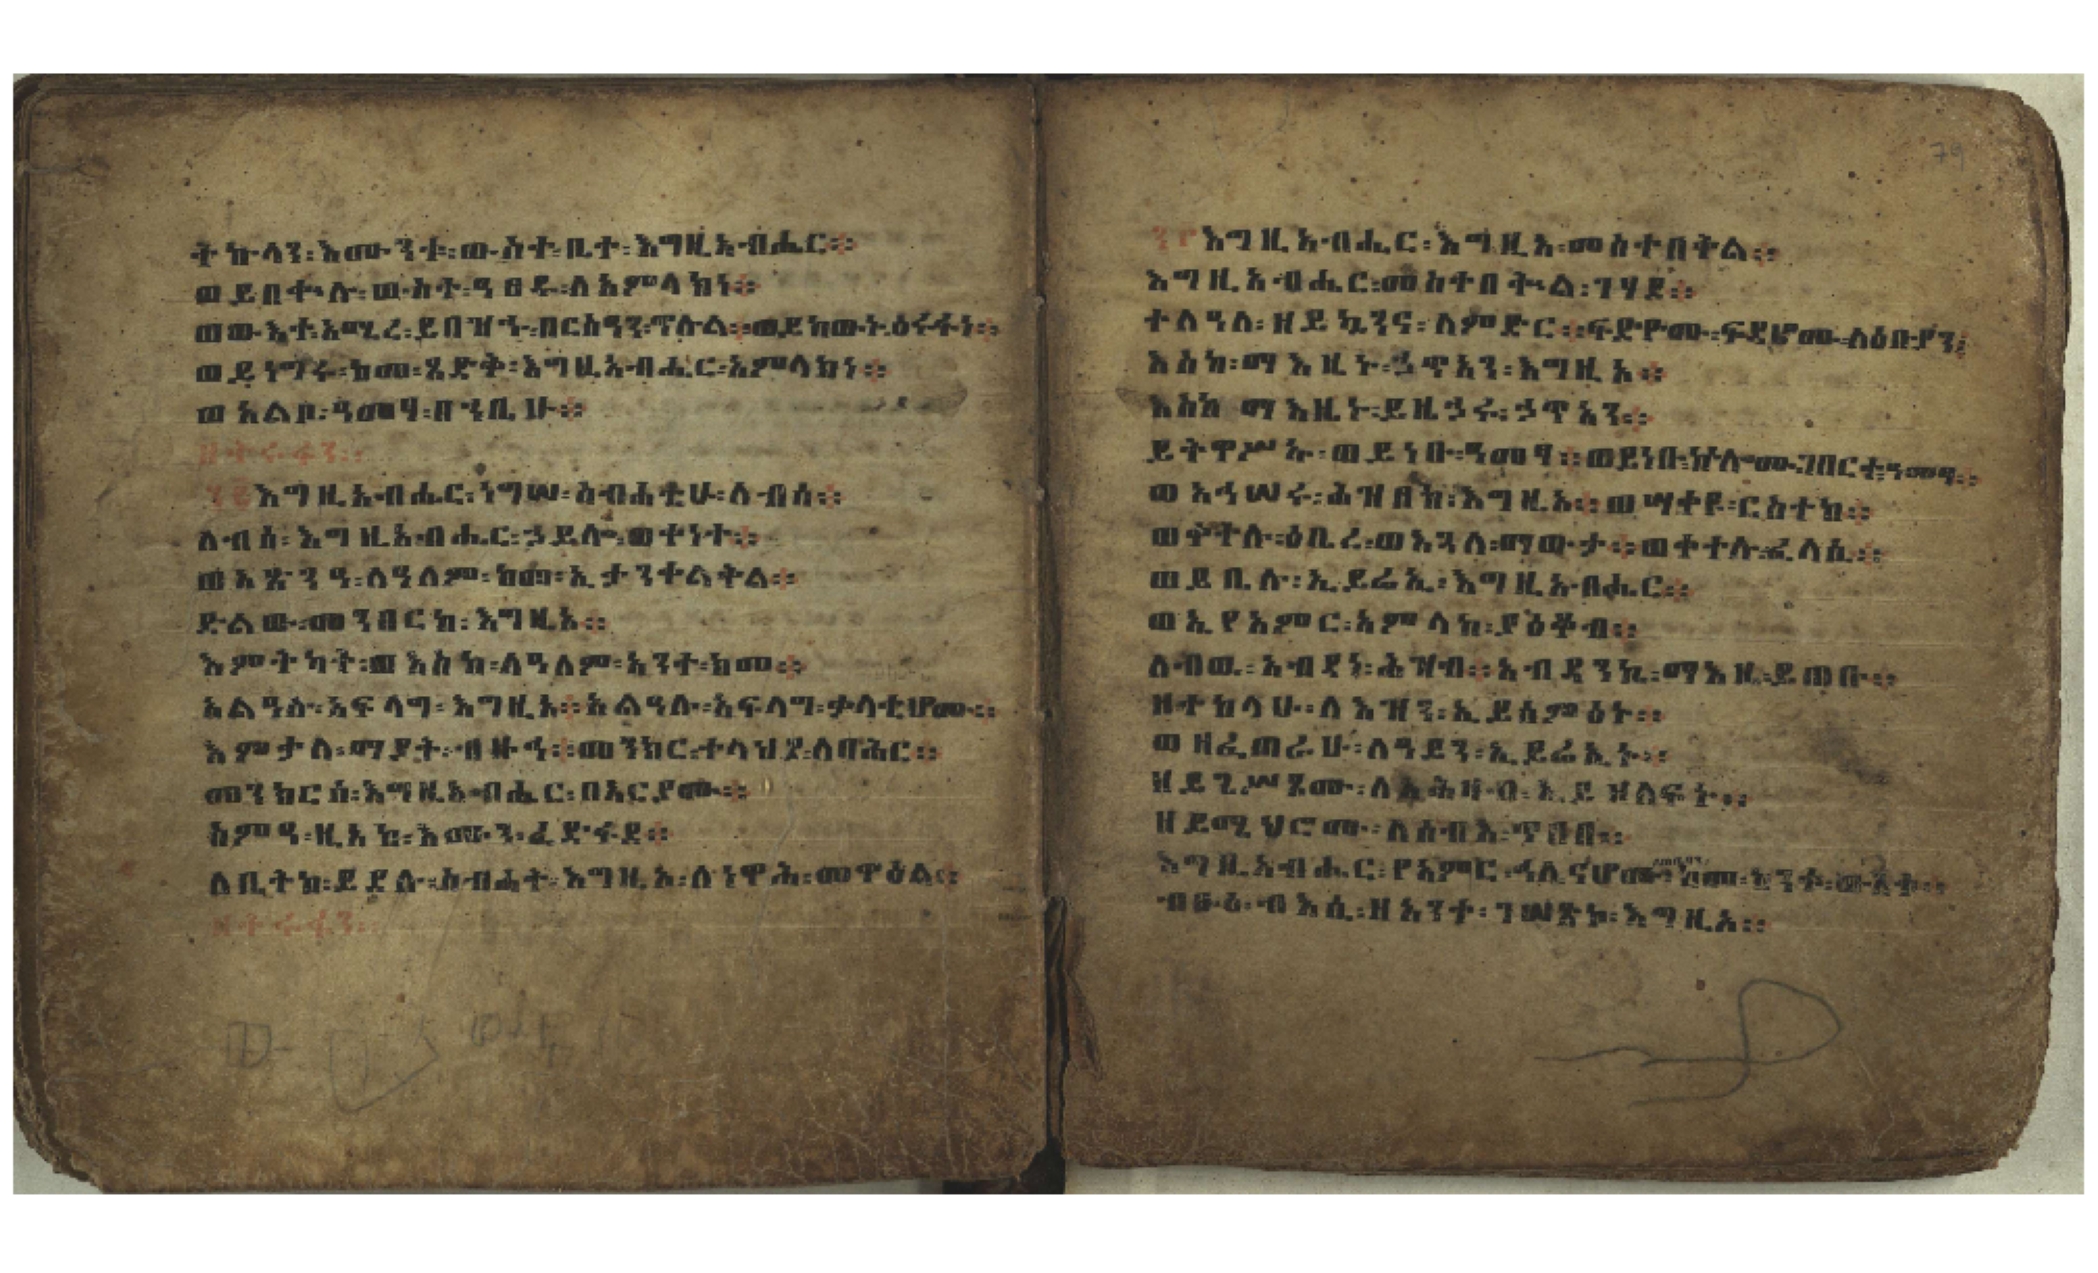 ትኩላን፡እሙንቱ፡ውስተ፡ቤተ፡እግዚአብሔር።
ወይበቍሉ፡ውስተ፡ዓፀዱ፡ለአምላክነ።
ወውእተ፡አሚረ፡ይበዝኁ፡በርስዓን፡ጥሉል።ወይከውኑ፡ዕሩፋነ።
ወይነግሩ፡ከመ፡ጸድቅ፡እግዚአብሔር፡አምላክነ።
ወአልቦ፡ዓመፃ፡በኀቤሁ።
ዘትሩፋን።
፺፪እግዚአብሔር፡ነግሠ፡ስብሐቲሁ፡ለብሰ።
ለብሰ፡እግዚአብሔር፡ኃይሎ፡ወተነተ።
ወአጽንዓ፡ለዓለም፡ከመ፡ኢታንተልትል።
ድልው፡መንበርከ፡እግዚአ።
እምትካት፡ወእስከ፡ለዓለም፡አንተ፡ክመ።
አልዓሉ፡አፍላግ፡እግዚአ።አልዓሉ፡አፍላግ፡ቃላቲሆሙ።
እምቃለ፡ማያት፡ብዙኅ።መንክር፡ተላህያ፡ለባሕር።
መንክርሰ፡እግዚአብሔር፡በአርያሙ።
ስምዓ፡ዚአከ፡እሙን፡ፈድፋደ።
ለቤትከ፡ይደሉ፡ስብሐት፡እግዚአ፡ለነዋሕ፡መዋዕል።
ዘትሩፋን።
፺፫እግዚአብሔር፡እግዚአ፡መስተበቅል።
እግዚአብሔር፡መስተበቍል፡ገሃደ።
ተለዓለ፡ዘይኴንና፡ለምድር።ፍድዮሙ፡ፍዳሆሙ፡ለዕቡያን፡
እስከ፡ማእዜኑ፡ኃጥአን፡እግዚአ።
እስከ ማእዜኑ፡ይዜኃሩ፡ኃጥአን።
ይትዋሥኡ፡ወይነቡ፡ዓመፃ።ወይነቡ፡ኵሎሙ፡ገበርተ፡ዓመፃ።
ወአኅሠሩ፡ሕዝበከ፡እግዚአ።ወሣቀዩ፡ርስተከ።
ወቀትሉ፡ዕቤረ፡ወእጓለ፡ማውታ።ወቀተሉ፡ፈላሴ።
ወይቤሉ፡ኢይሬኢ፡እግዚአብሔር።
ወኢየአምር፡አምላከ፡ያዕቆብ።
ለብዉ፡አብዳነ፡ሕዝብ።አብዳንኬ፡ማእዜ፡ይጠቡ።
ዘተከላሁ፡ለእዝን፡ኢይሰምዕኑ።
ወዘፈጠራሁ፡ለዓይን፡ኢይሬኢኑ።
ዘይጌሥጾሙ፡ለአሕዛብ፡ኢይዝልፍኑ።
ዘይሜህሮሙ፡ለሰብእ፡ጥበበ።
እግዚአብሔር፡የአምር፡ኀሊናሆሙ፡ከመ፡ከንቱ፡ውእቱ።
ብፁዕ፡ብእሲ፡ዘአንተ፡ገሠጽኮ፡እግዚአ።